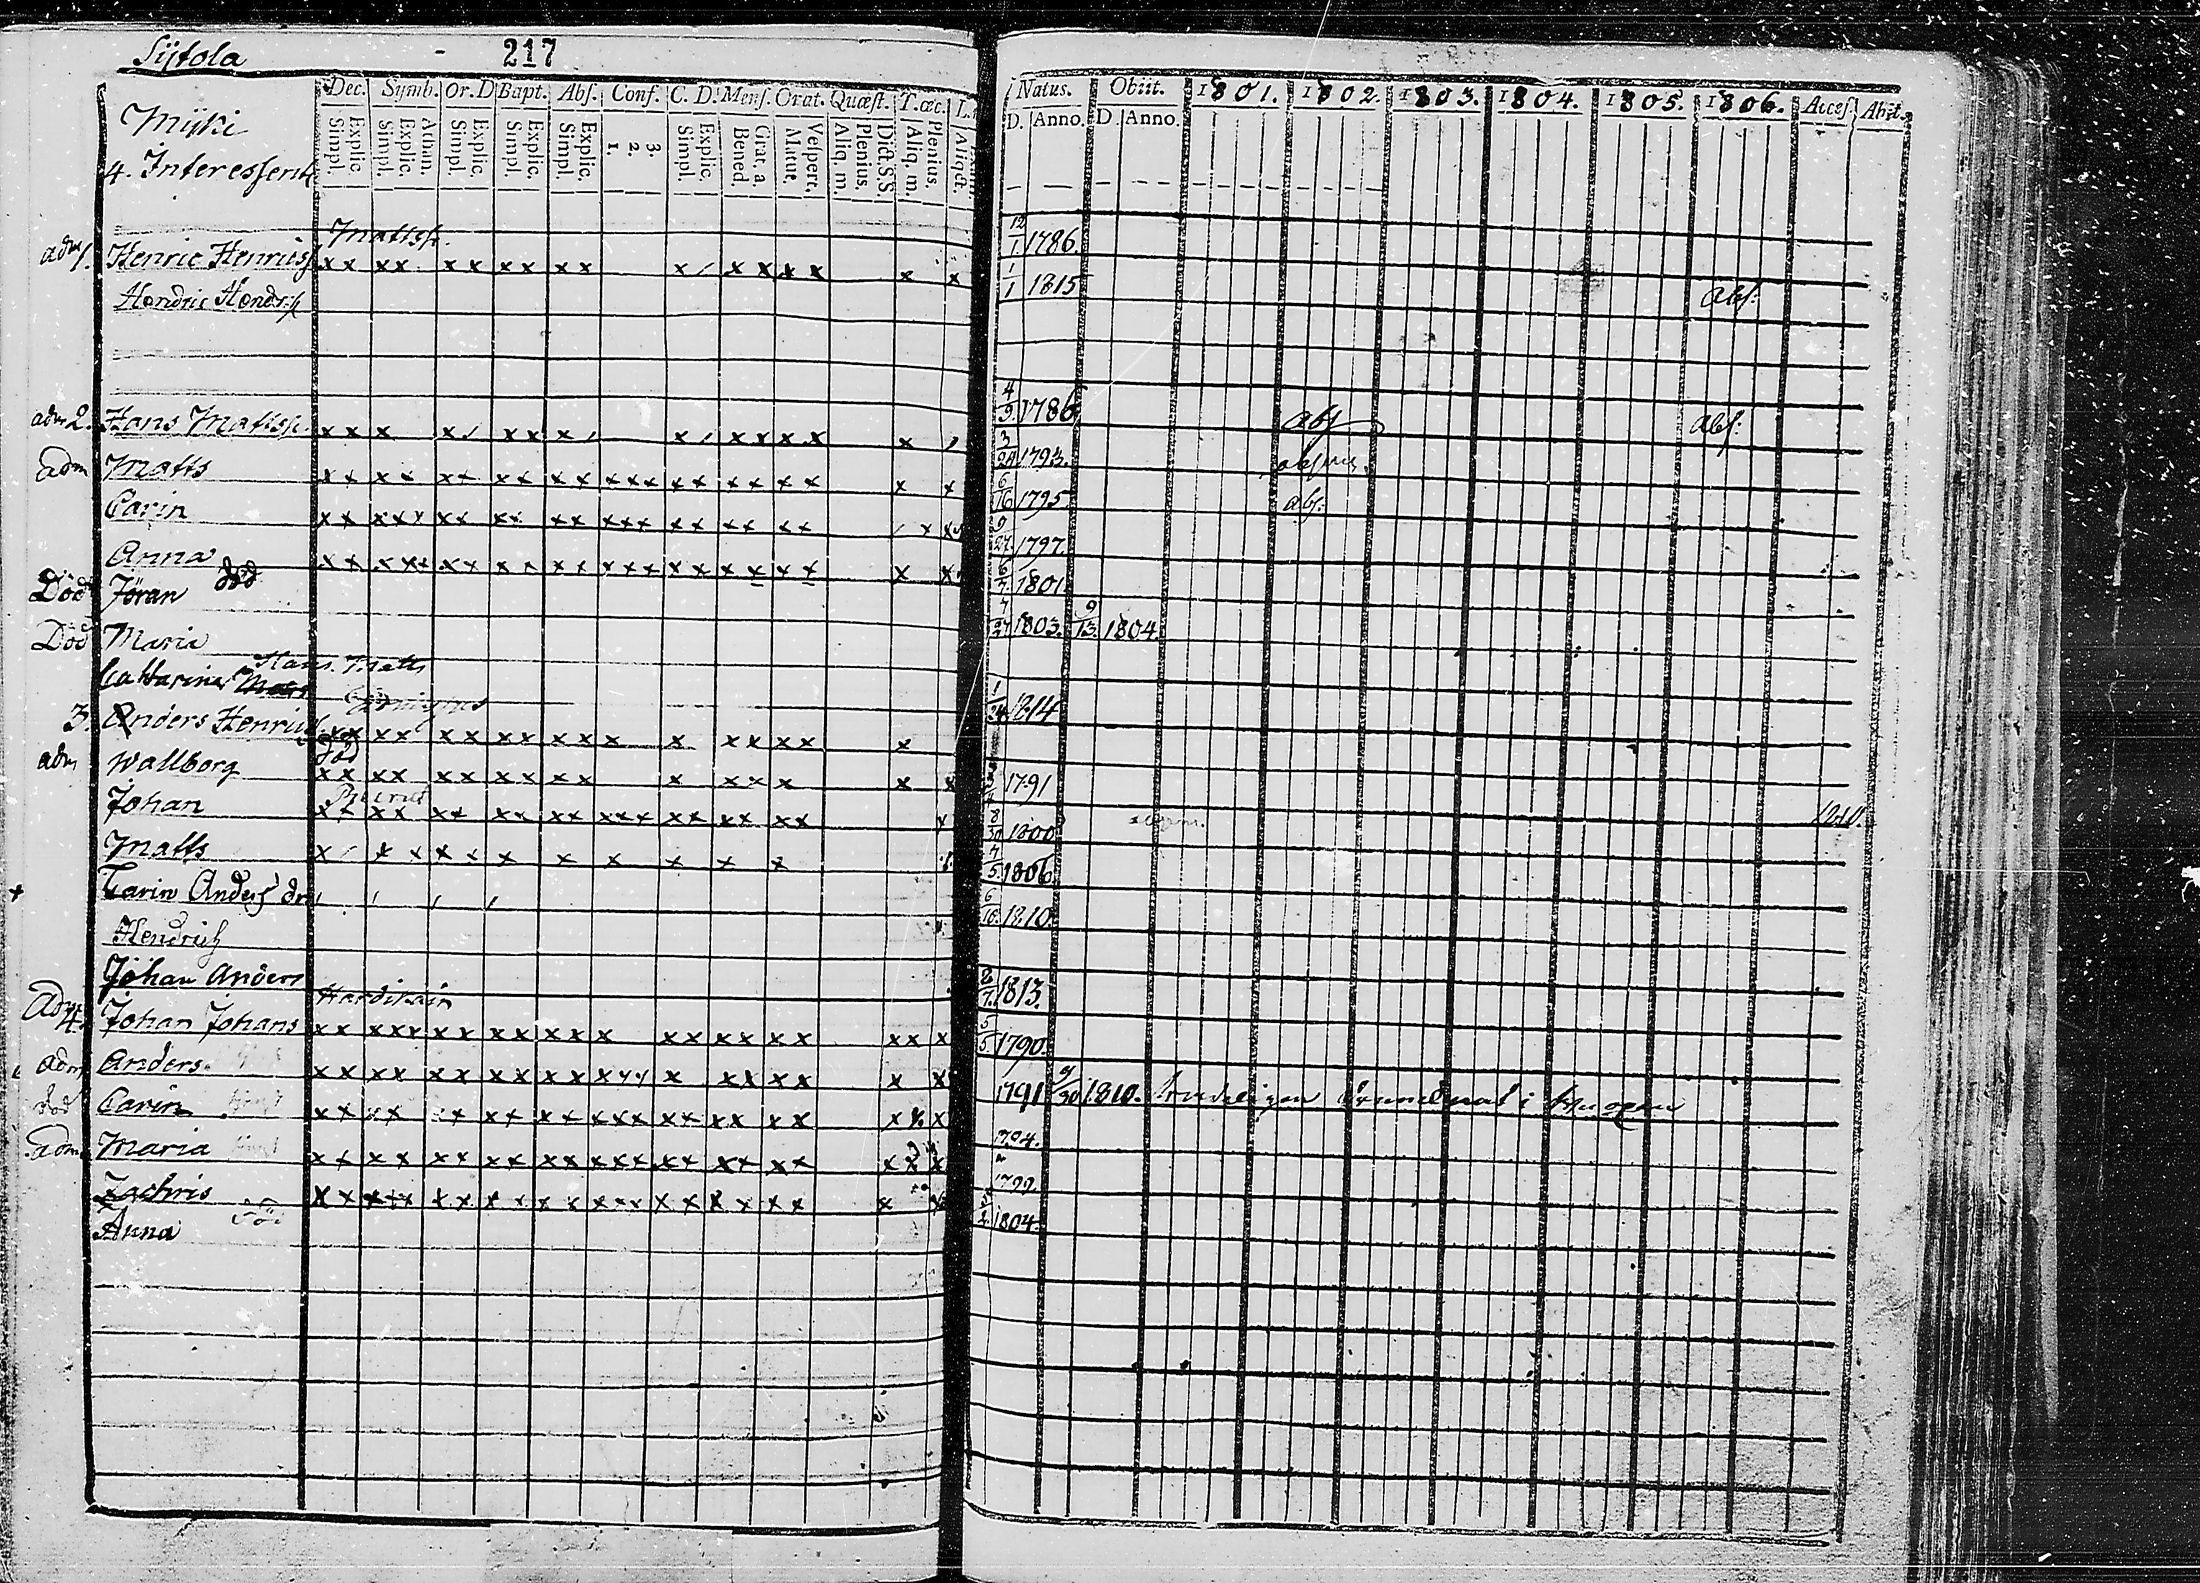 Sijtola 217
Mijki
4. Interessent
Dec. Symb. Or. D Bapt. Abs. Conf. C. D. Mens. Orat. Quæst. T. œc. L.
Simpl. Explic. Simpl. Explic. Athan. Simpl. Explic. Simpl. Explic. Simpl. Explic. 1. 2. 3. Simpl. Explic. Bened. Grat. a. Matut. Vespert. Aliq. m. Plenius. Dict. S.S. Aliq. m. Plenius. Aliq.
Natus. Obiit. 1801. 1802. 1803. 1804. 1805. 1806. Acces. Abit.
D. Anno. D. Anno.
Mattss.
adm 1. Henric Henrics 12/1 1786.
Hendric Hendrss 1/1 1815 abs:
adm 2. Hans Mattss. 4/9 1786 abs abs:
adm Matts 3/24 1793.
Carin 6/16 1795 abs:
Anna 9/27 1797.
Död Jöran död 6/7 1801
Död Maria 7/27 1803. 9/13. 1804.
Hans Matts
Catharina 1/24 1814
3. Anders Henrics
adm Wallborg död 1791
Johan 8/30 1800 1810.
Matts 7/5 1806
Carin Anders dr 6/16 1810
Hendrich
Johan Anders 2/7 1813.
Adm 4. Johan Johans 5/5 1790
adm Anders
död Carin 1791 9/30 1810.
adm Maria 1794.
Zachris 1799
Anna död 1804